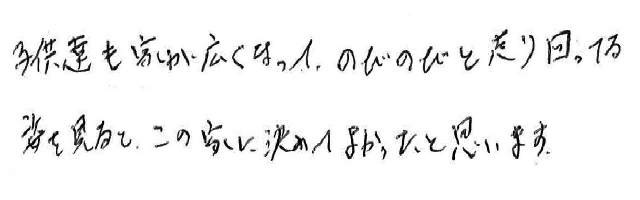 子供達も家が広くなって、のびのびと走り回ってる
姿を見ると、この家に決めてよかったと思います。